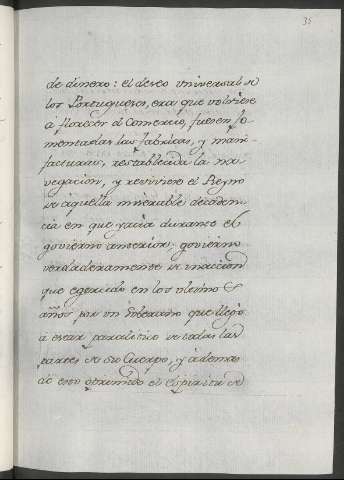 35
de dinero: el deseo universal de
los Portugueses, era que volviese
à florecer el Comercio, fuesen fo-
mentadas las fabricas, y mani-
facturas, restablecida la na-
vegacion, y reviviese el Reyno
de aquella miserable decaden-
cia en que yacia durante el
govierno anterior; govierno
verdaderamente de inaccion
que egercido en los ultimos
años por un Soberano que llegó
à estar paralitico de todas las
partes de su Cuerpo, y ademas
de esto oprimido el espiritu de